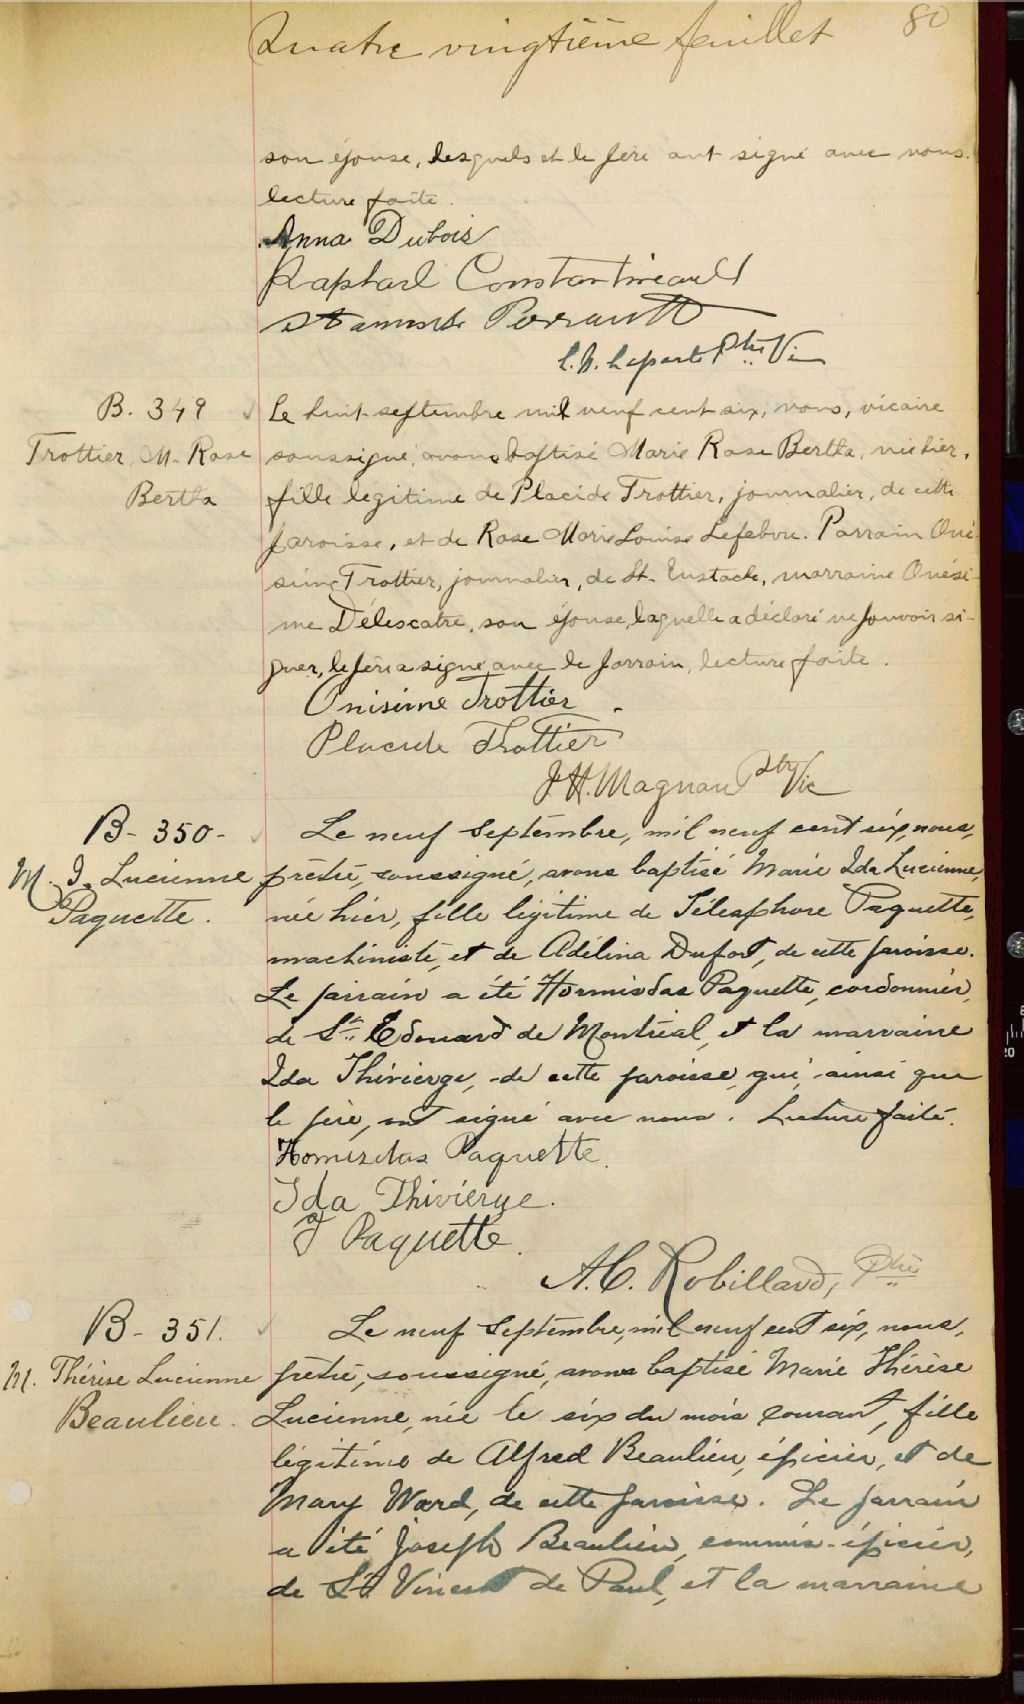 Quatre vingtième feuillet 80
son épouse, lesquels et le père ont signé avec nous.
lecture faite.
Anna Dubois
Raphael Constantineault
Perrault
Laporte Ptre Vic
B. 349
Trottier, M. Rose
Bertha
Le huit septembre mil neuf cent six, nous, vicaire
soussigné, avons baptisé Marie Rose Bertha, née hier,
fille légitime de Placide Trottier, journalier, de cette
paroisse, et de Rose Marie Louise Lefebvre. Parrain Oné-
sime Trottier, journalier, de St. Eustache, marraine Onési-
me son épouse, laquelle a déclaré ne pouvoir si-
gner, le père a signé avec le parrain, lecture faite.
Onisime Trottier
Placide Trottier
J. H. Magnan Ptre Vic
B- 350-
M. I. Lucienne
Paquette.
Le neuf Septembre, mil neuf cent six, nous,
prêtre, soussigné, avons baptisé Marie Ida Lucienne,
née hier, fille légitime de Télesphore Paquette,
machiniste, et de Adélina Dufort, de cette paroisse.
Le parrain a été Hormisdas Paquette, cordonnier,
de St. Edouard de Montréal, et la marraine
Ida Thivierge, de cette paroisse, qui, ainsi que
le père, ont signé avec nous. Lecture faite.
Homisdas Paquette.
Ida Thivierge.
T Paquette.
A. C. Robillard, Ptre
B- 351.
M. Thérèse Lucienne
Beaulieu.
Le neuf Septembre, mil neuf cent six, nous,
prêtre, soussigné, avons baptisé Marie Thérèse
Lucienne, née le six du mois courant, fille
légitime de Alfred Beaulieu, épicier, et de
Mary Ward, de cette paroisse. Le parrain
a été Joseph Beaulieu, commis-épicier,
de St Vincent de Paul, et la marraine